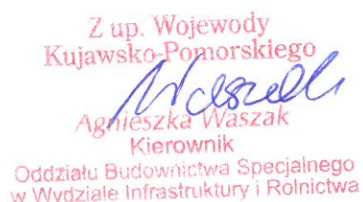 Z up. Wojewody
Kujawsko-Pomorskiego
Agnieszka Waszak
Kierownik
Oddziału Budownictwa Specjalnego
w Wydziale Infrastruktury i Rolnictwa